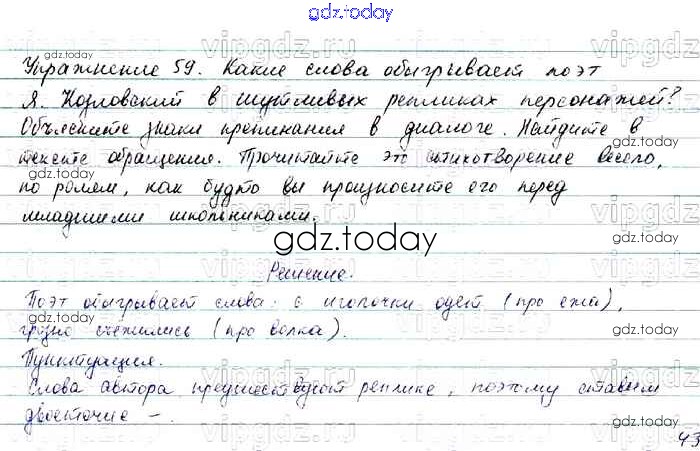 gdz.today
Упражнение 59. Какие слова обыгрывает поэт
Я. Козловский в шутливых репликах персонажей?
Объясните знаки препинания в диалоге. Найдите в
тексте обращения. Прочитайте это стихотворение весело,
по ролям, как будто вы произносите его перед
младшими школьниками.
gdz.today
Решение.
Поэт обыгрывает слова: с иголочки одет (про ежа),
грозно съежились (про волка).
Пунктуация.
Слова автора предшествуют реплике, поэтому ставим
двоеточие –.
43